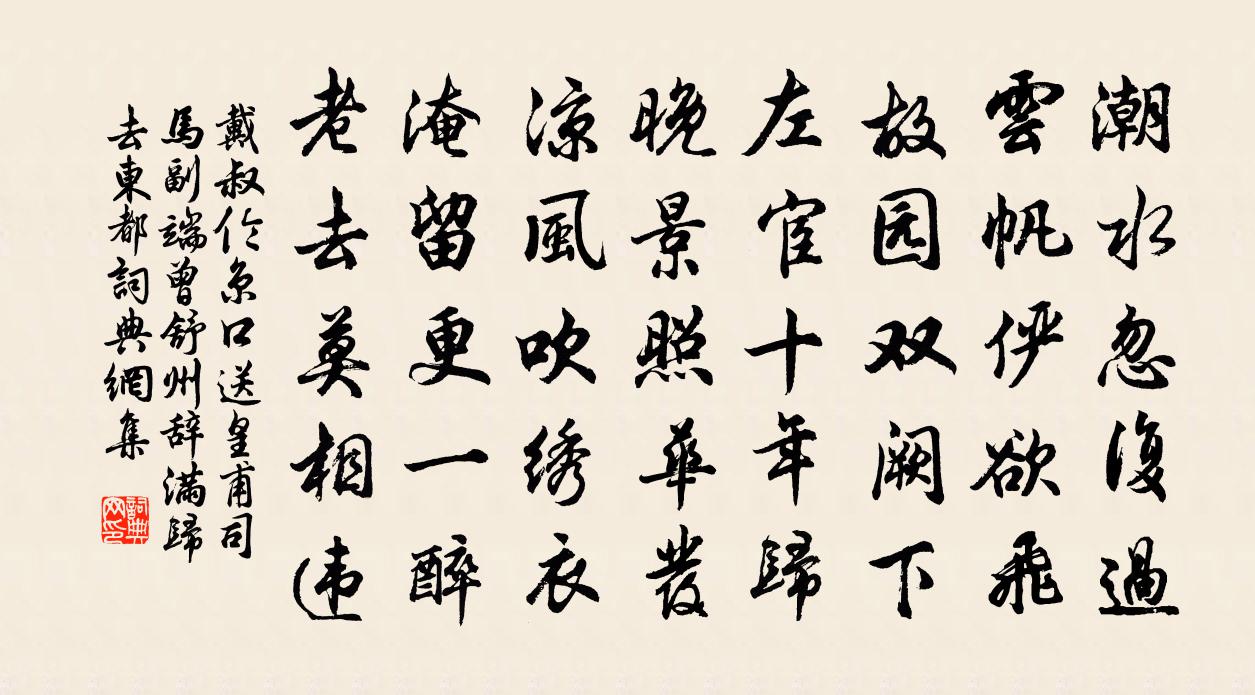 潮水忽復過
雲帆俨欲飛
故园双阙下
左宦十年歸
晚景照華發
凉風吹绣衣
淹留更一醉
老去莫相违
戴叔伦京口送皇甫司
馬副端曾舒州辞满歸
去東都詞典網集
詞典
网印